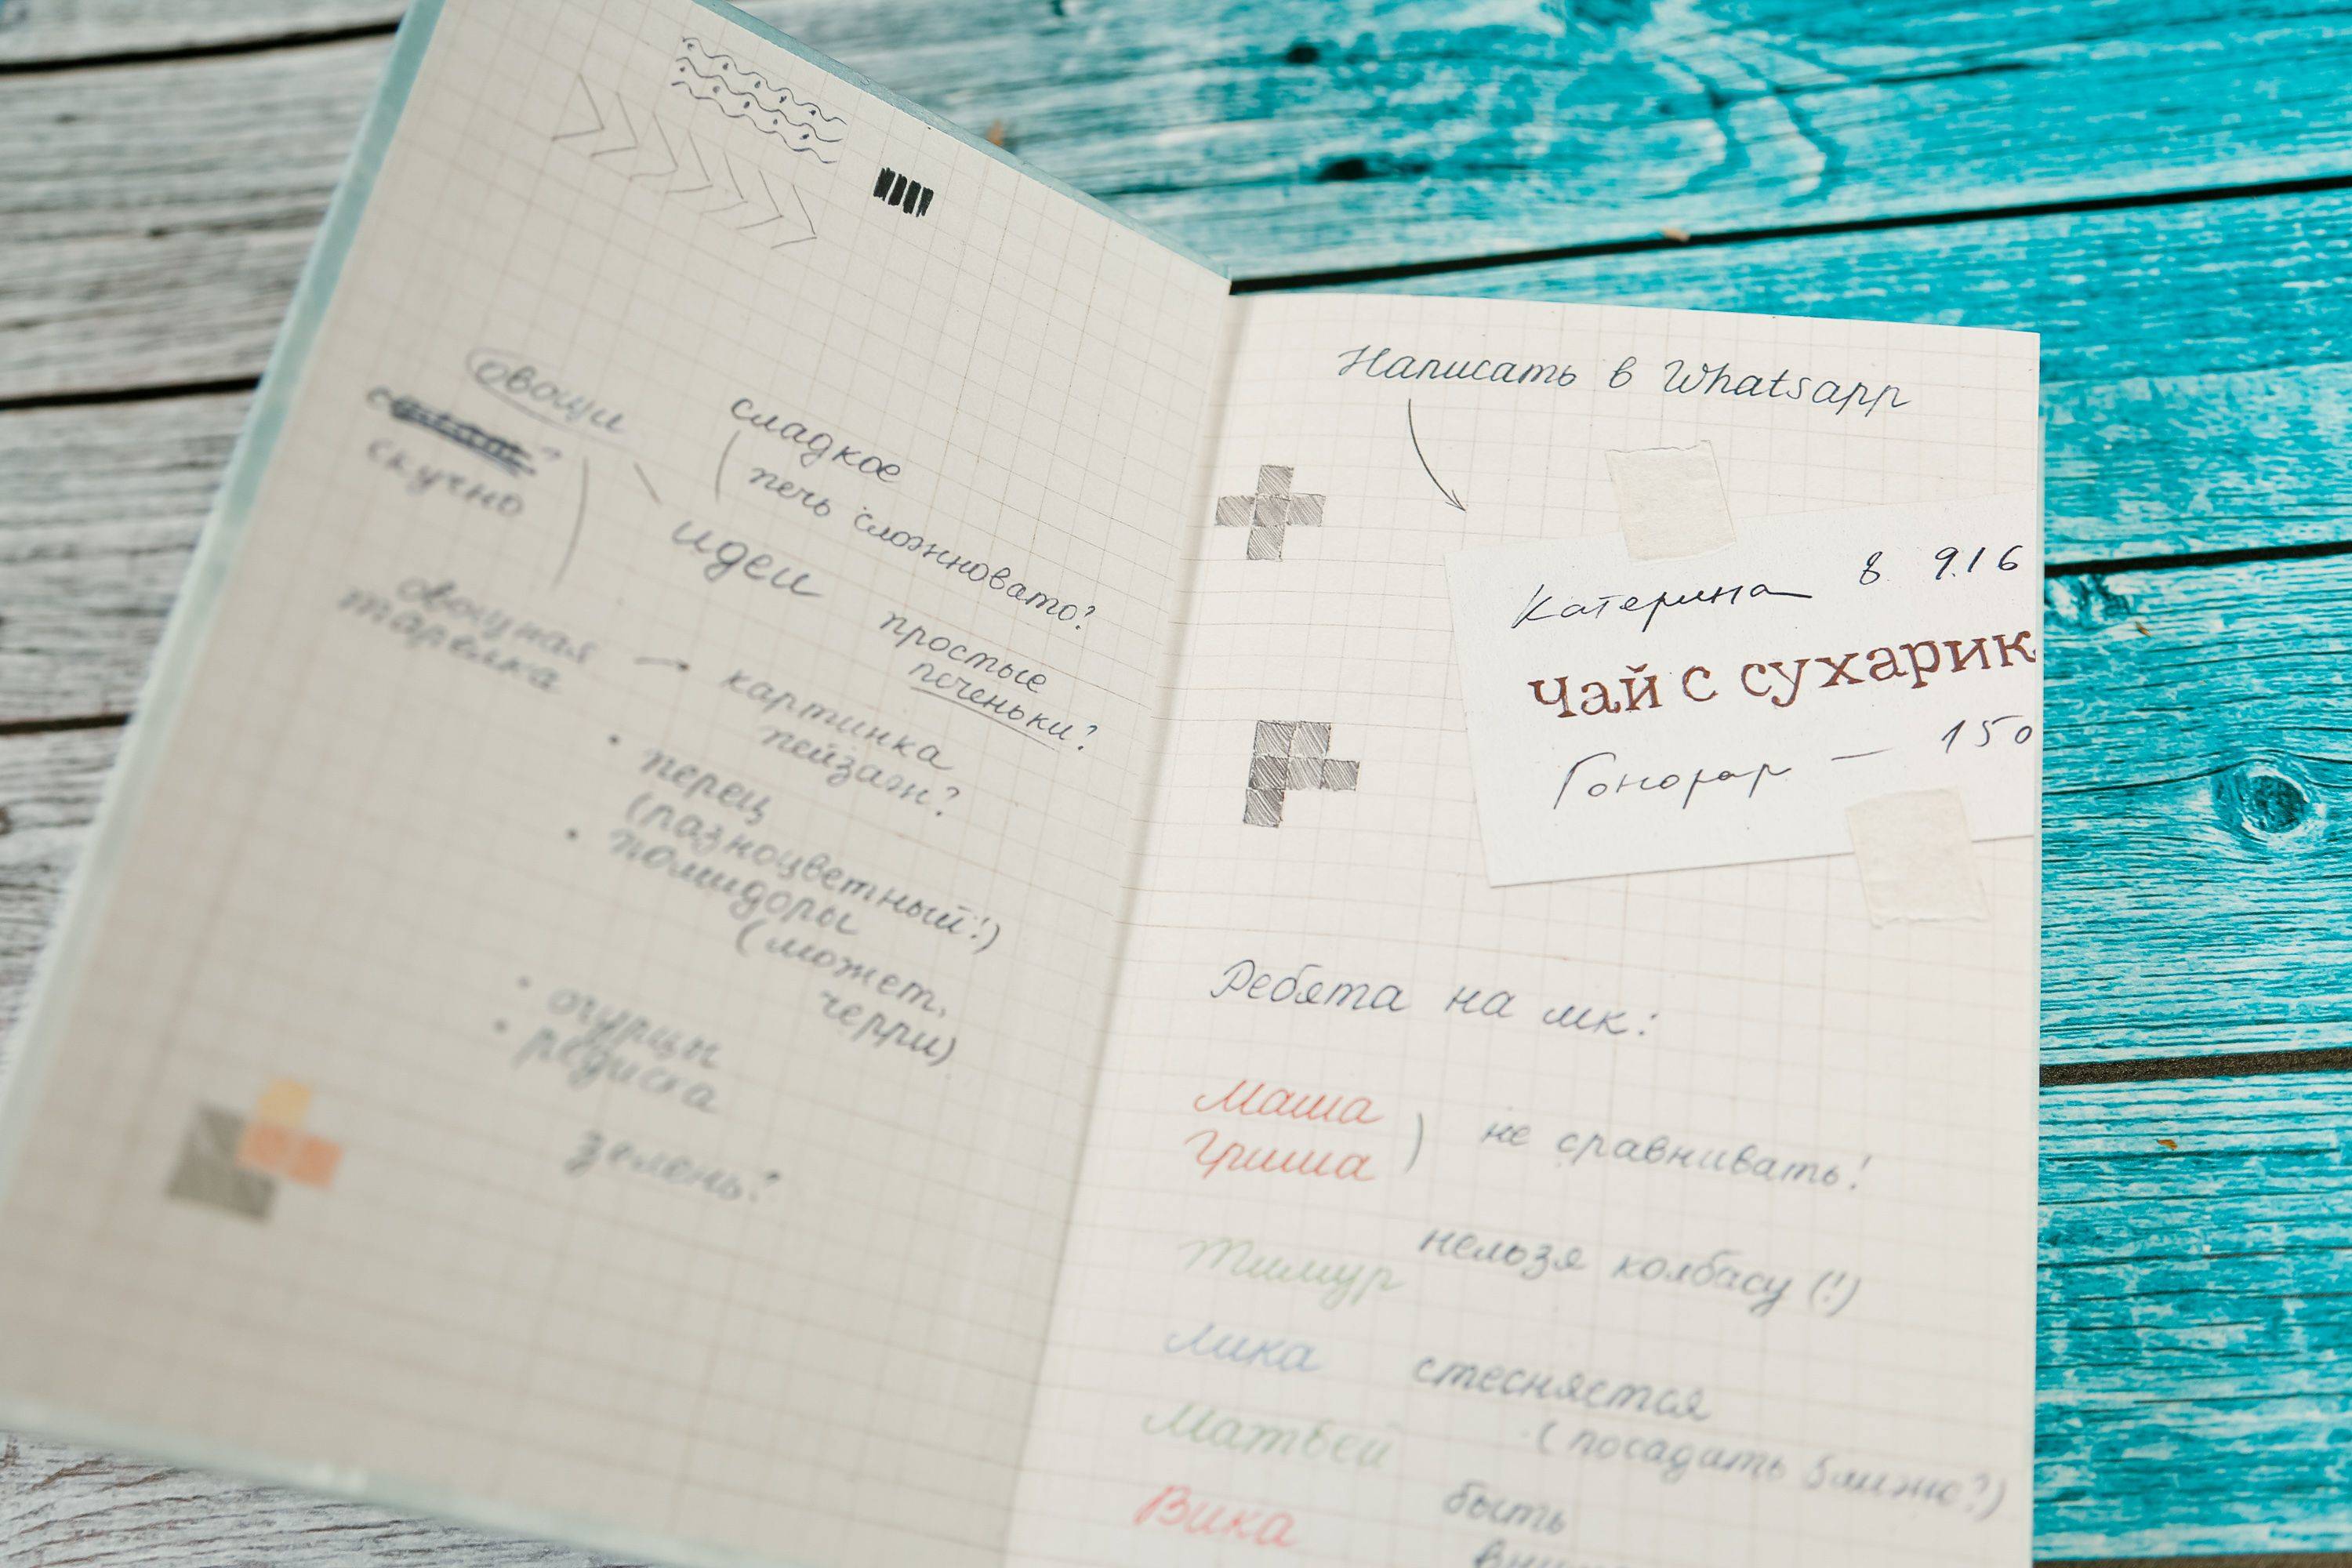 овощи
скучно
сладкое
печь сложновато?
идеи
простые
печеньки?
овощная
тарелка
картинка
пейзаж?
• перец
(разноцветный!)
• помидоры
(может,
черри)
• огурцы
• редиска
зелень?
Написать в Whatsapp
Катерина 8 916
Чай с сухарик
Гонорар — 150
Ребята на мк:
Маша
Гриша
не сравнивать!
Тимур нельзя колбасу (!)
Лика стесняется
(посадать ближе?)
Матвей
Вика быть